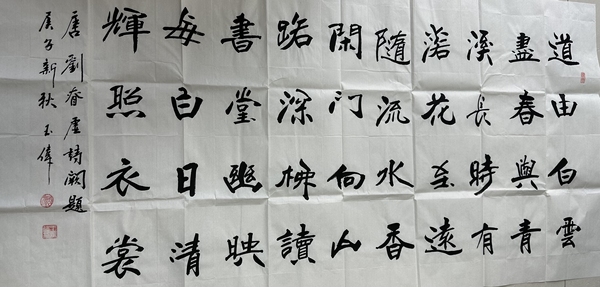 道由白雲
盡春與青
溪長時有
落花至遠
隨流水香
閑門向山
路深柳讀
書堂幽映
每白日清
輝照衣裳
唐劉眘虛詩闕題
庚子新秋玉偉